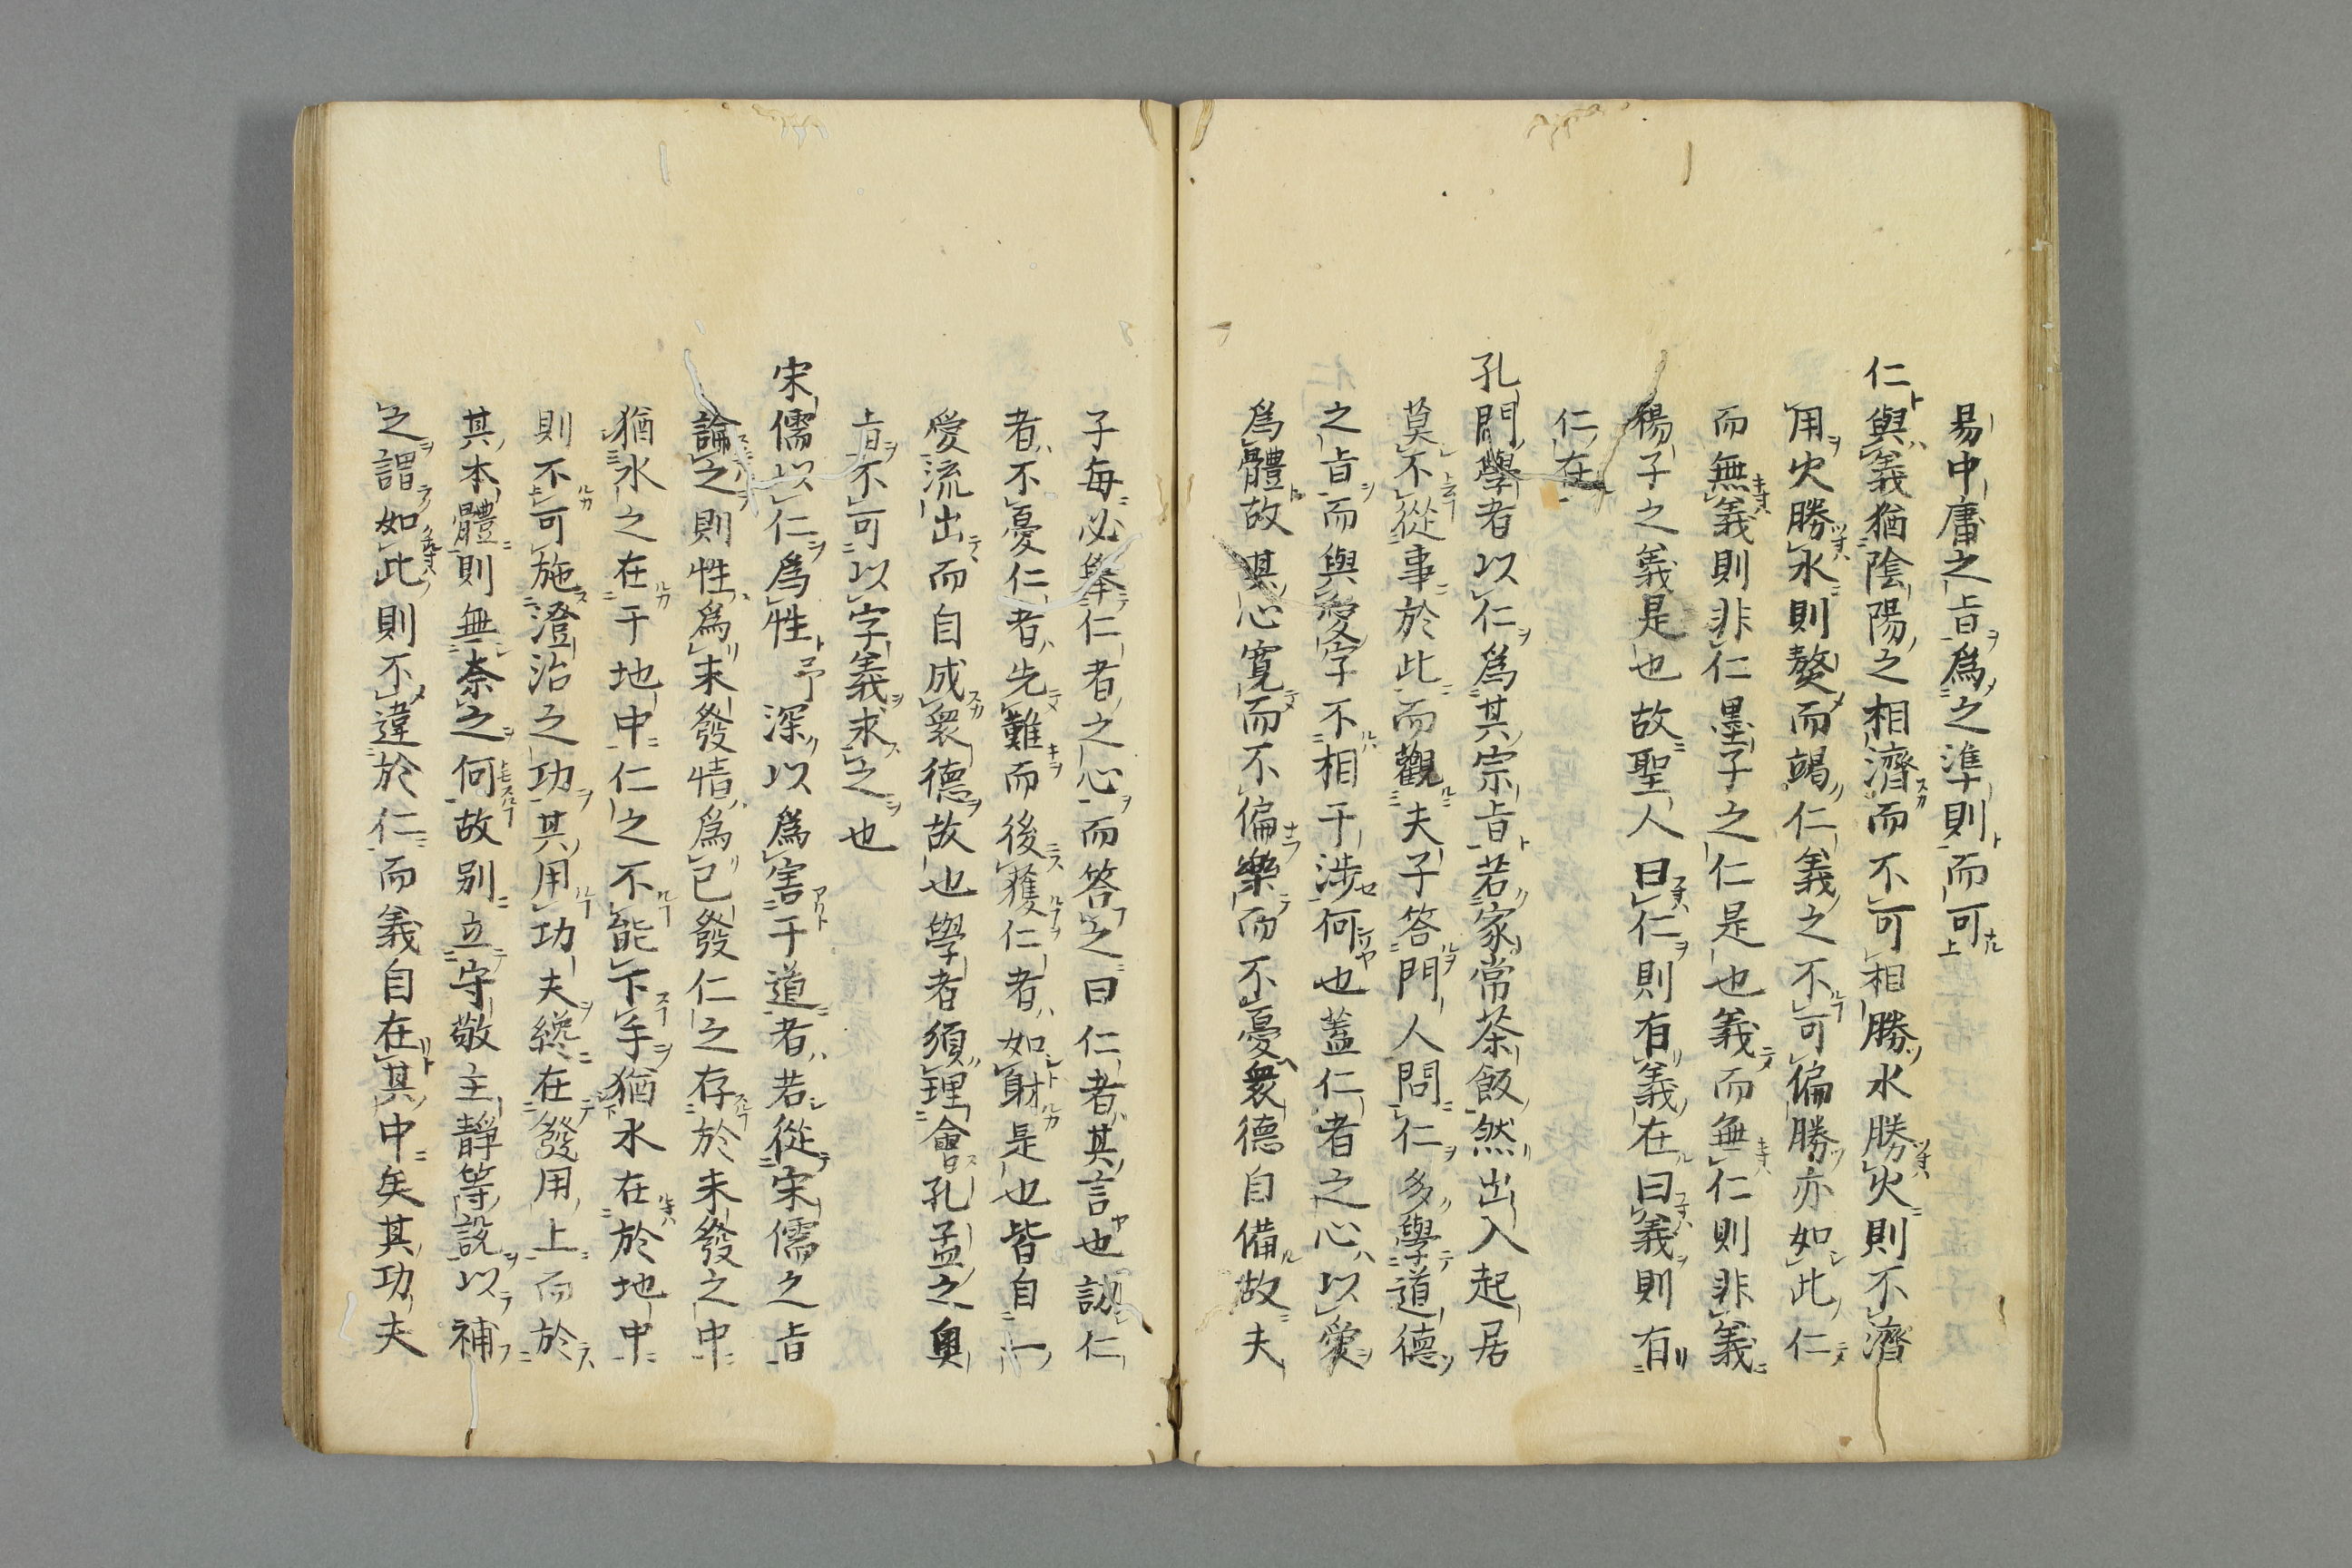 易中庸之旨爲之準則而可
仁與義猶陰陽之相濟而不可相勝水勝火則不濟
用火勝水則熬而竭仁義之不可偏勝亦如此仁
而無義則非仁墨子之仁是也義而無仁則非義
楊子之義是也故聖人曰仁則有義在曰義則有
仁在
孔門學者以仁爲其宗旨若家常茶飯然出入起居
莫不從事於此而觀夫子答門人問仁多學道德
之旨而與愛字不相干涉何也蓋仁者之心以愛
爲體故其心寬而不偏樂而不憂衆德自備故夫
子每必舉仁者之心而答之曰仁者其言也訒仁
者不憂仁者先難而後獲仁者如射是也皆自一
愛流出而自成衆德故也學者須理會孔孟之奧
旨不可以字義求之也
宋儒以仁爲性予深以爲害于道者若從宋儒之旨
論之則性爲未發情爲已發仁之存於未發之中
猶水之在于地中仁之不能下手猶水在於地中
則不可施澄治之功其用功夫纔在發用上而於
其本體則無奈之何故別立守敬主靜等說以補
之謂如此則不違於仁而義自在其中矣其功夫